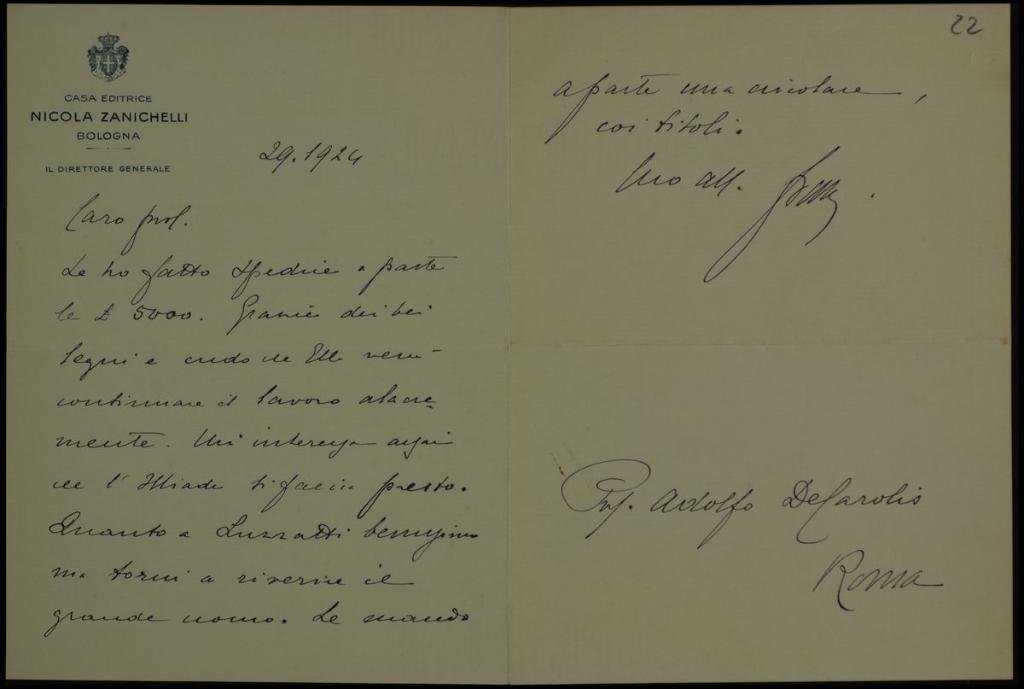 22
CASA EDITRICE
NICOLA ZANICHELLI
BOLOGNA
IL DIRETTORE GENERALE
29.1924
Caro prof.
Le ho fatto spedire a parte
le £ 5000. Grazie dei bei
segni e credo che Ella
continuare il lavoro alacre-
mente. Mi interessa assai
che l'Iliade si faccia presto.
Quanto a Luzzatti benissimo
ma torni a riverire il
grande uomo. Le mando
a parte una circolare,
coi titoli.
Suo aff.
Prof. Adolfo De Carolis
Roma